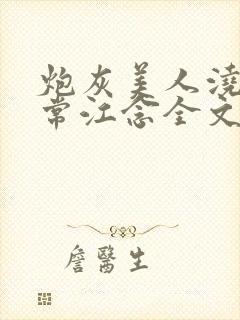 炮灰美人澆
常江念全文
詹醫生